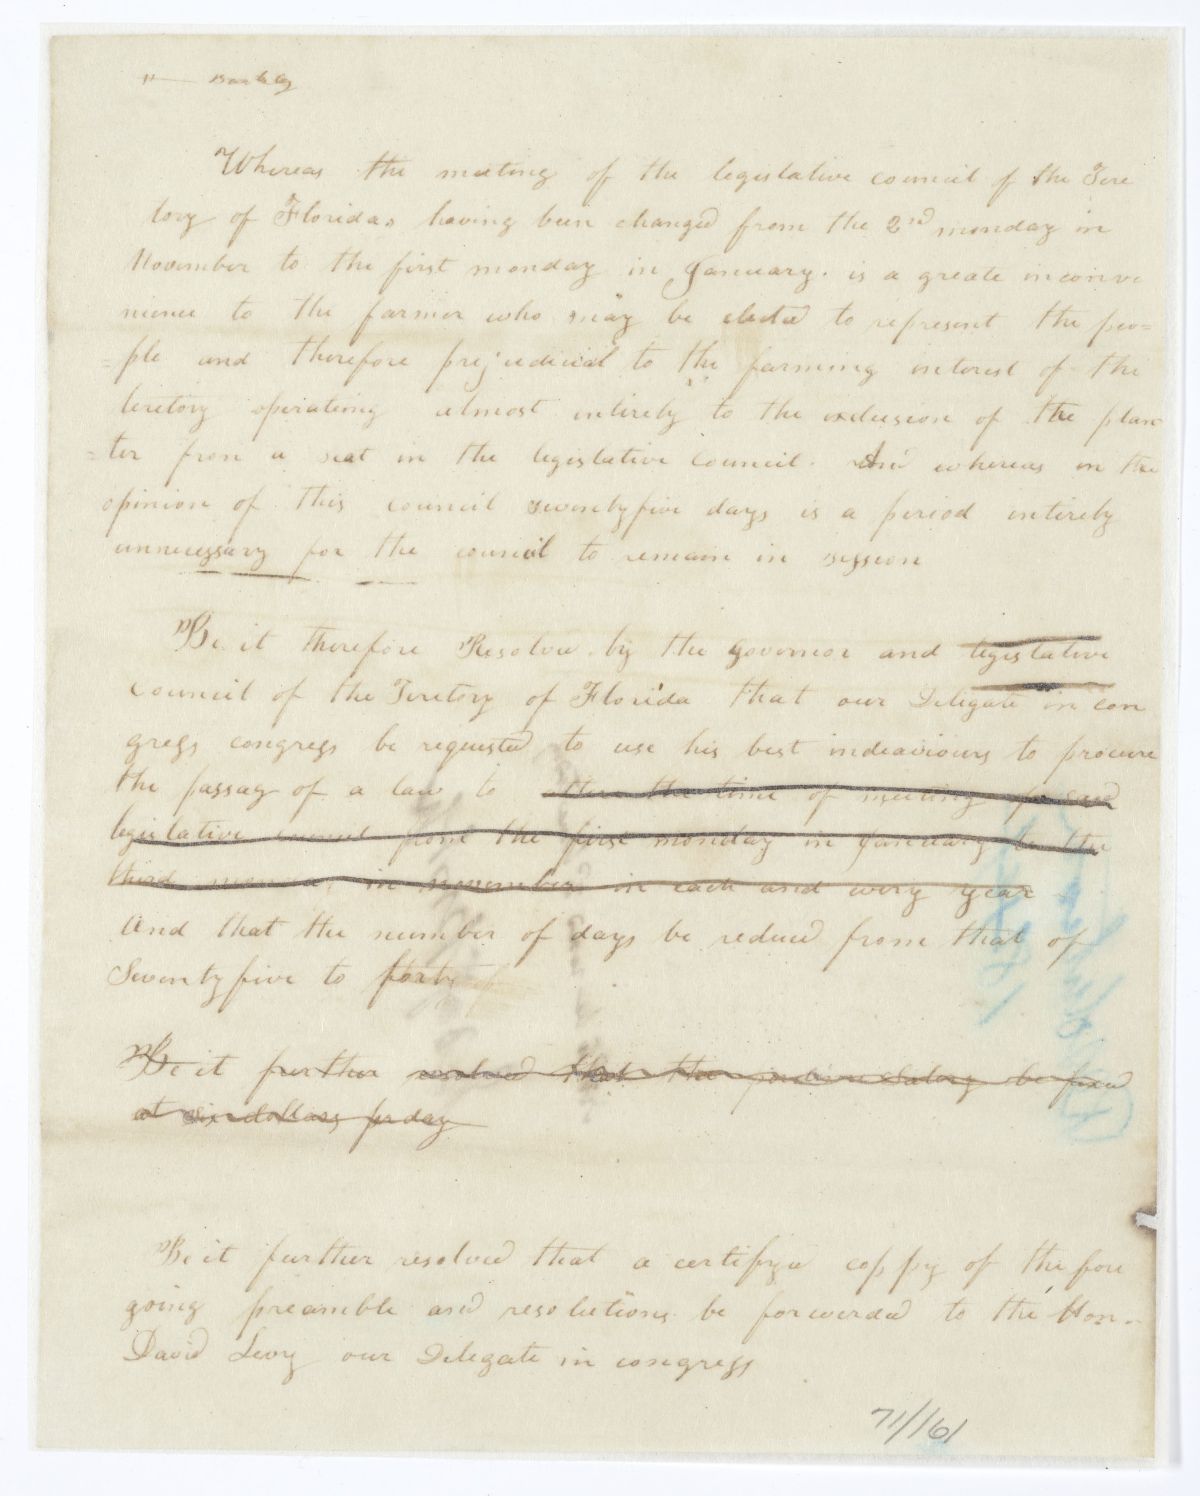 Whereas the meeting of the legislative council of the Tere
tory of Florida, having been changed from the 2nd monday in
November to the first monday in January. is a greate inconve
nience to the farmer who may be elected to represent the peo=
=ple and therefore prejudicial to the farming interest of the
teretory operateing almost intirely to the exclusion of the plan
=ter from a seat in the legislative council. And whereas in the
opinion of this council seventyfive days is a period intirely
unnecessary for the council to remain in session
Be it therefore Resolved by the governor and legislative
Council of the Teretory of Florida that our Deligate in con
gress congress be requested to use his best indeaviours to procure
the passag of a law to alter the time of meeting of said
legislative council from the first monday in January to the
third monday in november in each and every year
and that the number of days be reduced from that of
Seventyfive to forty
Be it further resolved that the salary be fixed
at six dollars per day
Be it further resolved that a certifyed coppy of the fore
going preamble and resolutions be forwerded to the Hon..
David Levy our Deligate in congress
71/161